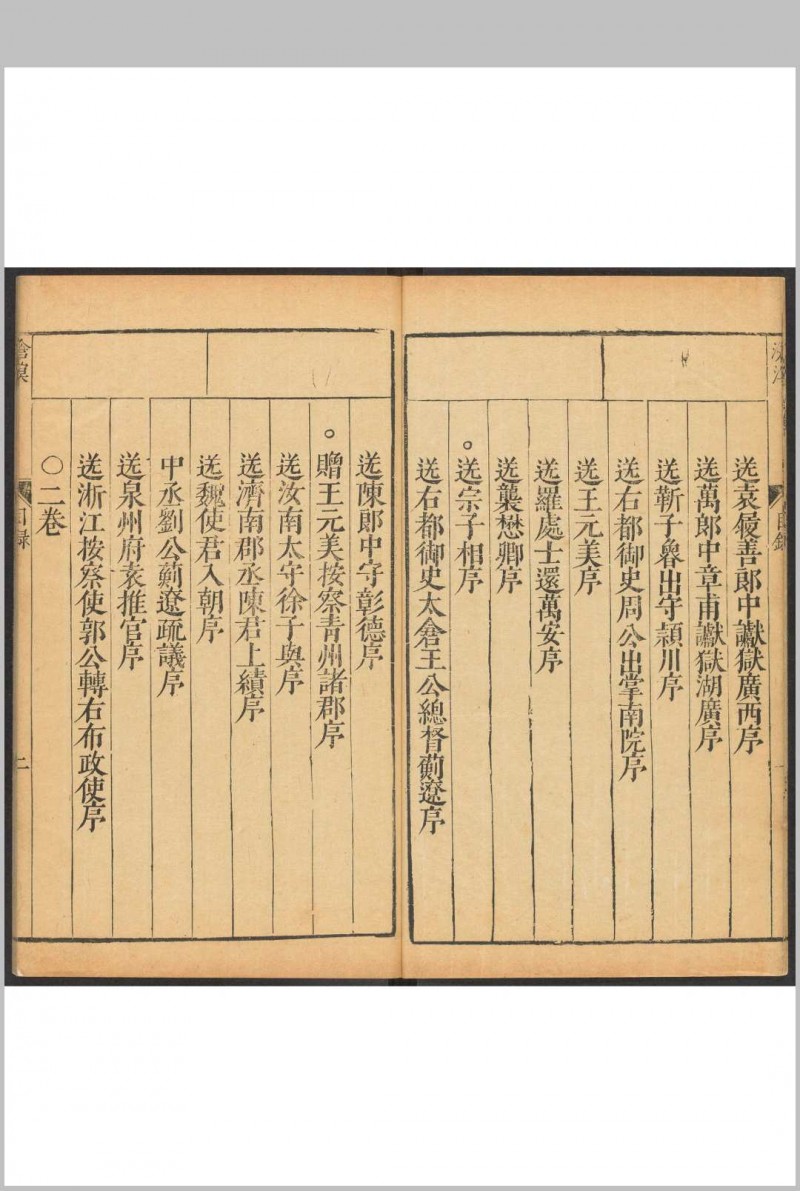 送袁履善郎中讞獄廣西序
送萬郎中章甫讞獄湖廣序
送靳子魯出守潁川序
送右都御史周公出掌南院序
送王元美序
送羅處士還萬安序
送龔懋卿序
○送宗子相序
送右都御史太倉王公總督薊遼序
目錄
送陳郎中守彰德序
○贈王元美按察青州諸郡序
送汝南太守徐子與序
送濟南郡丞陳君上績序
送魏使君入朝序
中丞劉公薊遼疏議序
送泉州府袁推官序
送浙江按察使郭公轉右布政使序
○二卷
目錄
二